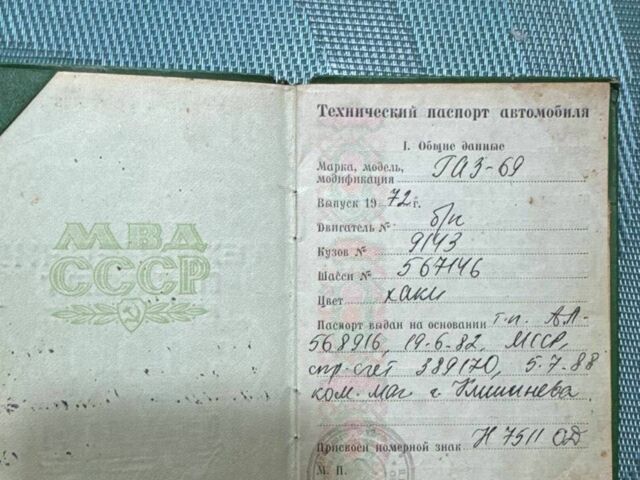 МВД
СССР
Технический паспорт автомобиля
I. Общие данные
Марка, модель,
модификация ГАЗ-69
Выпуск 1972 г.
Двигатель № б/н
Кузов № 9143
Шасси № 567146
Цвет хаки
Паспорт выдан на основании т.п. АЛ-
568916, 19-6-82, МССР,
спр-счет 389170, 5.7-88
ком. маг г. Кишинева
Присвоен номерной знак Н 7511 ОД
М. П.